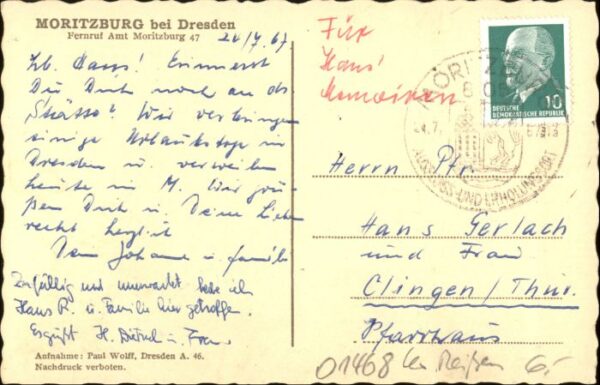 MORITZBURG bei Dresden
Fernruf Amt Moritzburg 47
24/7. 67.
Lb. Hans! Erinnerst
Du Dich noch an d.
Stätte? Wir verbringen
einige Urlaubstage in
Dresden u. verweilen
heute in M. Wir grü-
ßen Dich u. Deine Liebe
recht herzlich
Dein Johannes u. Familie
Zufällig und unerwartet habe ich
Hans R. u. Familie hier getroffen.
Es grüßt H. u. Frau
Aufnahme: Paul Wolff, Dresden A. 46.
Nachdruck verboten.
Für
Hans'
Memoiren
DEUTSCHE
DEMOKRATISCHE REPUBLIK
10
MORITZBURG
24.7.
AUSFLUGS- UND ERHOLUNGSORT
Herrn Pfr.
Hans Gerlach
und Frau
Clingen/Thür.
Pfarrhaus
01468 b. Meißen 6,-